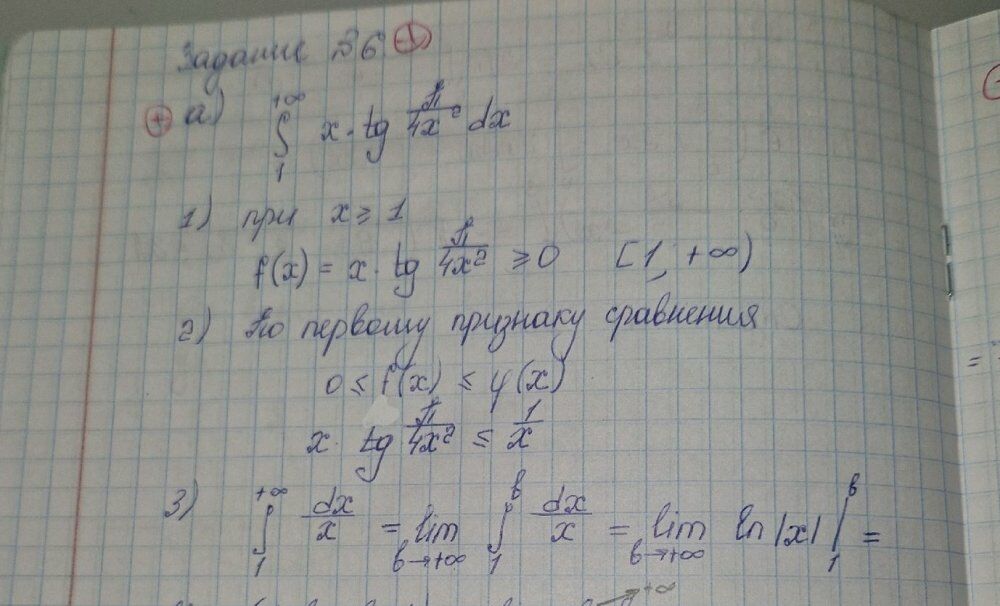 Задание №6 (-1)
(+) а) ∫₁^{+∞} x · tg π/4x² dx
1) при x ≥ 1
f(x) = x · tg π/4x² ≥ 0 [1, +∞)
2) По первому признаку сравнения
0 ≤ f(x) ≤ φ(x)
x · tg π/4x² ≤ 1/x
3) ∫₁^{+∞} dx/x = lim_{в→+∞} ∫₁^в dx/x = lim_{в→+∞} ln|x| |₁^в =